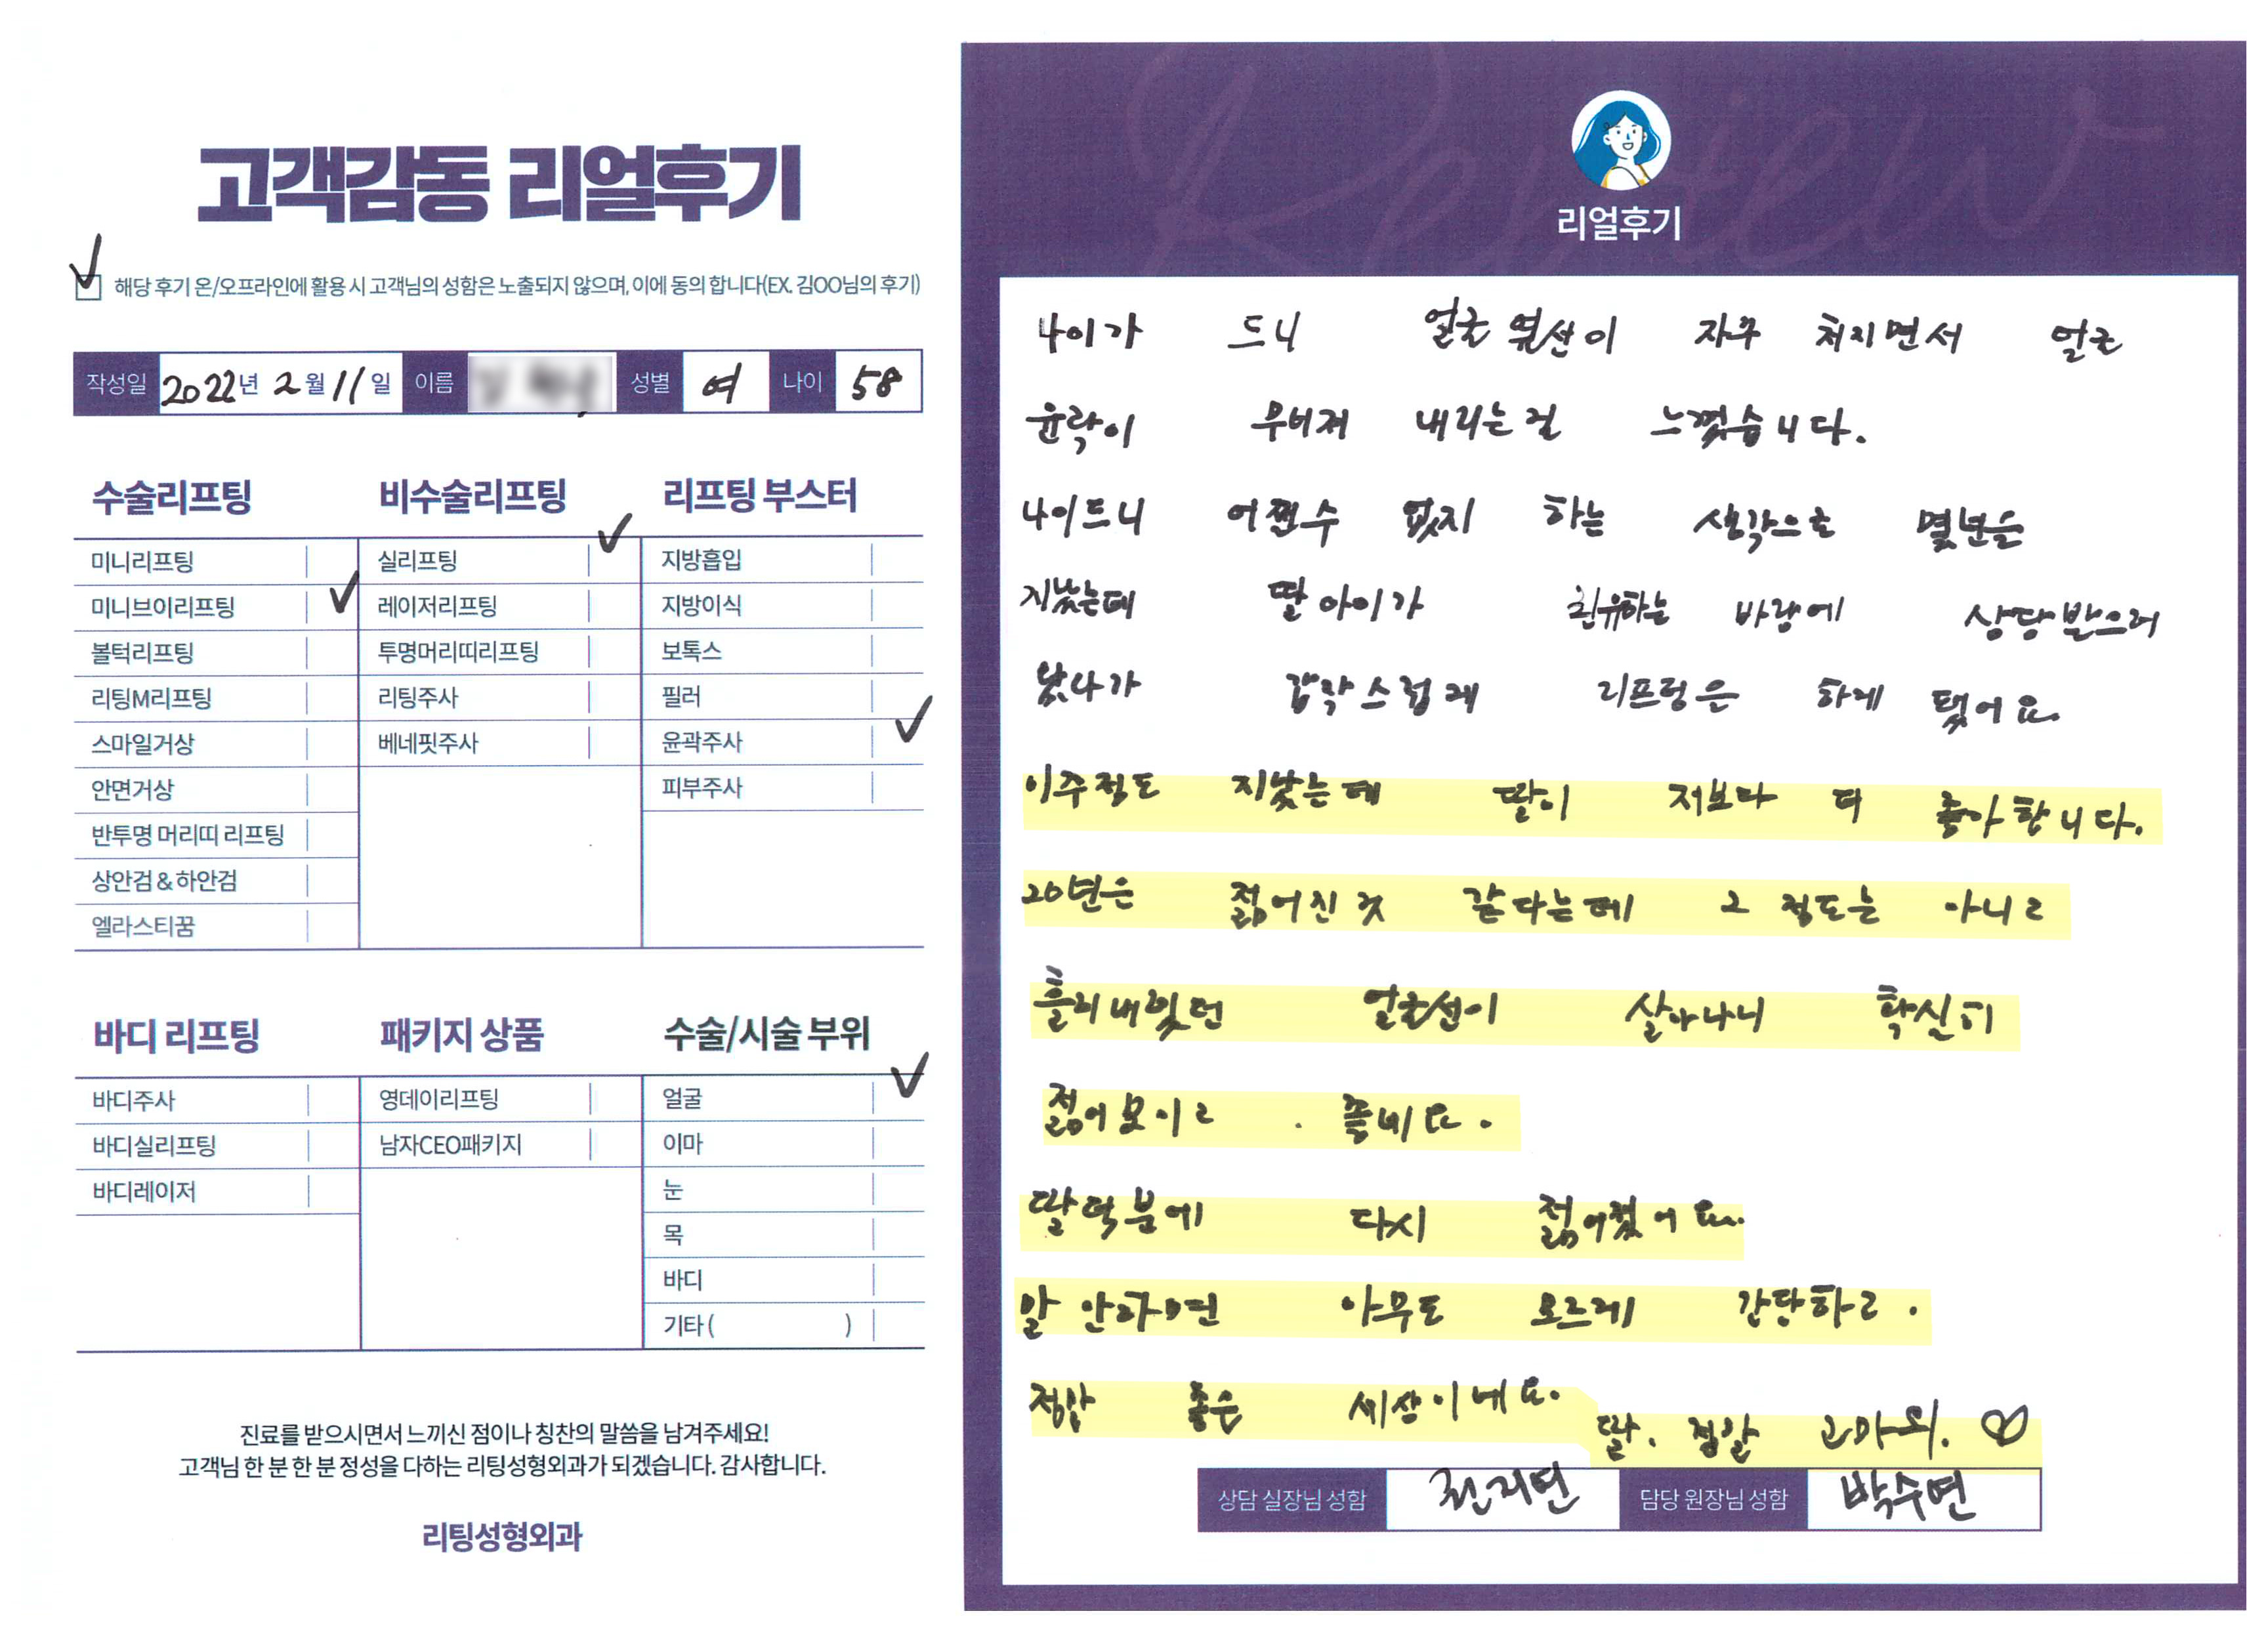 고객감동 리얼후기
해당 후기 온/오프라인에 활용 시 고객님의 성함은 노출되지 않으며, 이에 동의 합니다(EX. 김OO님의 후기)
작성일 2022년 2월 11일 이름 성별 여 나이 58
수술리프팅
미니리프팅
미니브이리프팅
볼턱리프팅
리팅M리프팅
스마일거상
안면거상
반투명 머리띠 리프팅
상안검 & 하안검
엘라스티꿈
비수술리프팅
실리프팅
레이저리프팅
투명머리띠리프팅
리팅주사
베네핏주사
리프팅 부스터
지방흡입
지방이식
보톡스
필러
윤곽주사
피부주사
바디 리프팅
바디주사
바디실리프팅
바디레이저
패키지 상품
영데이리프팅
남자CEO패키지
수술/시술 부위
얼굴
이마
눈
목
바디
기타 ( )
진료를 받으시면서 느끼신 점이나 칭찬의 말씀을 남겨주세요!
고객님 한 분 한 분 정성을 다하는 리팅성형외과가 되겠습니다. 감사합니다.
리팅성형외과
Review
리얼후기
나이가 드니 얼굴 자꾸 처지면서 얼굴
윤곽이 무너져 내리는걸 느꼈습니다.
나이드니 어쩔수 없지 하는 생각으로 몇년을
지났는데 딸아이가 권유하는 바람에 상담받으러
왔다가 갑작스럽게 리프팅은 하게 됐어요.
이주정도 지났는데 딸이 저보다 더 좋아합니다.
20년은 젊어진 것 같다는데 그 정도는 아니고
흘러내렸던 얼굴선이 살아나니 확실히
젊어보이고 . 좋네요.
딸덕분에 다시 젊어졌어요.
말 안하면 아무도 모르게 간단하고.
정말 좋은 세상이네요.
딸. 정말 고마워. ♡
상담 실장님 성함 담당 원장님 성함 박수연